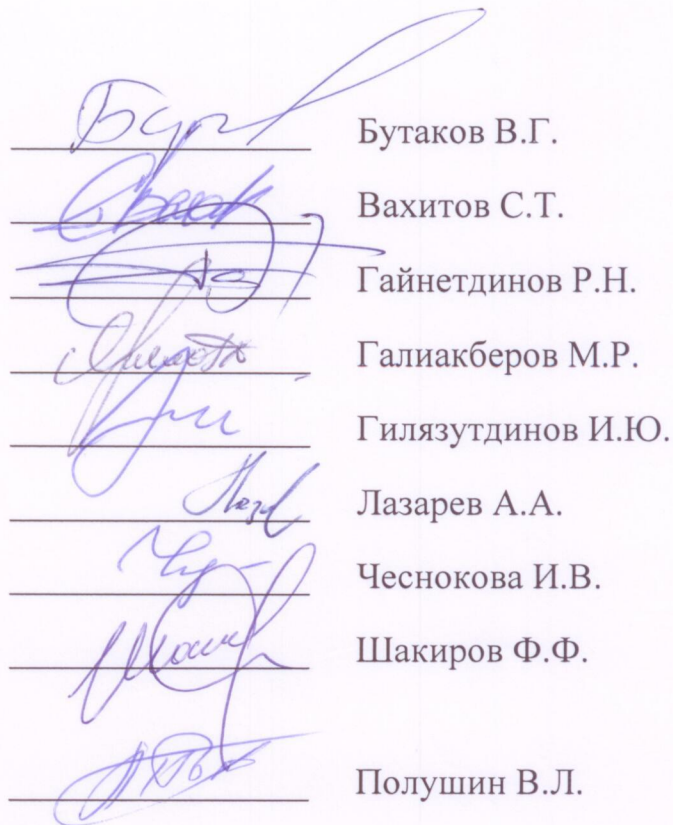 Бутаков В.Г.
Вахитов С.Т.
Гайнетдинов Р.Н.
Галиакберов М.Р.
Гилязутдинов И.Ю.
Лазарев А.А.
Чеснокова И.В.
Шакиров Ф.Ф.
Полушин В.Л.